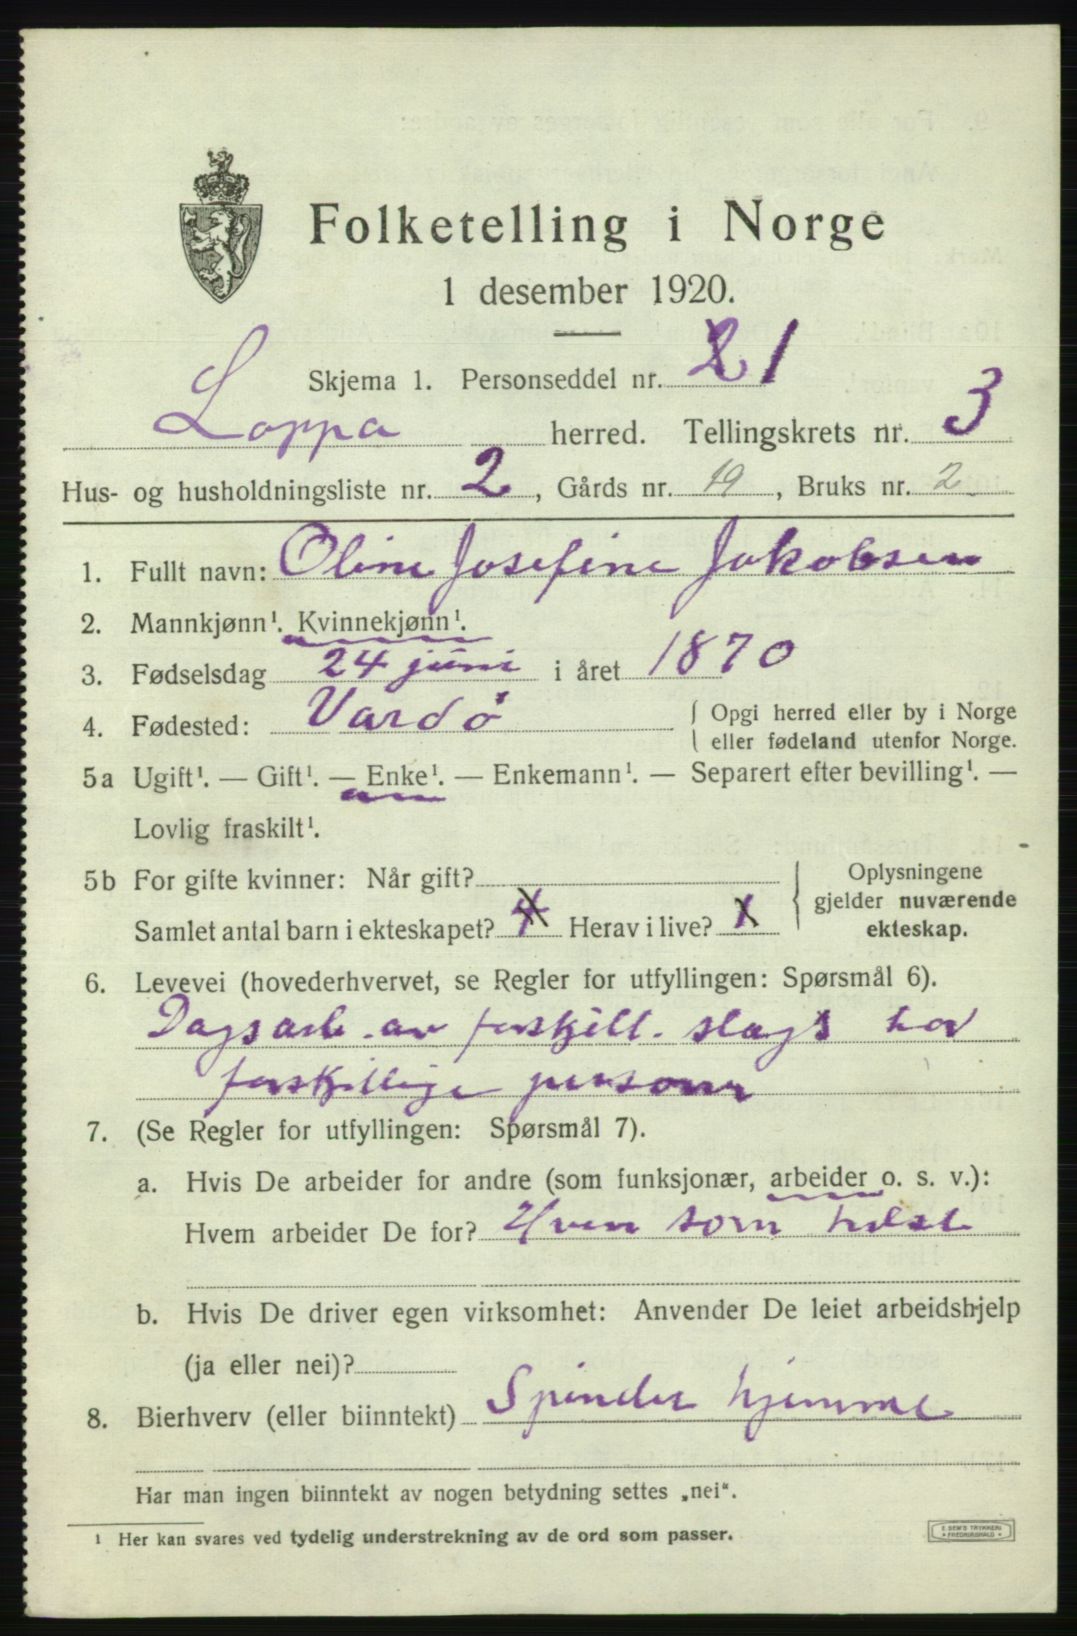 Folketelling i Norge
1 desember 1920.
Skjema 1. Personseddel nr. 21
Loppa herred. Tellingskrets nr. 3
Hus- og husholdningsliste nr. 2, Gårds nr. 19, Bruks nr. 2
1. Fullt navn: Oline Josefine Jakobsen
2. Mannkjønn¹. Kvinnekjønn¹.
3. Fødselsdag 24 juni i året 1870
4. Fødested: Vardø { Opgi herred eller by i Norge
eller fødeland utenfor Norge.
5a Ugift¹. — Gift¹. — Enke¹. — Enkemann¹. — Separert efter bevilling¹. —
Lovlig fraskilt¹.
5b For gifte kvinner: Når gift? } Oplysningene
gjelder nuværende
ekteskap.
Samlet antal barn i ekteskapet? 4 Herav i live? 1
6. Levevei (hovederhvervet, se Regler for utfyllingen: Spørsmål 6).
Dagsarb. av forskjell. slags hos
forskjellige personer
7. (Se Regler for utfyllingen: Spørsmål 7).
a. Hvis De arbeider for andre (som funksjonær, arbeider o. s. v.):
Hvem arbeider De for? Hvem som helst
b. Hvis De driver egen virksomhet: Anvender De leiet arbeidshjelp
(ja eller nei)?
8. Bierhverv (eller biinntekt) Spinder hjemme
Har man ingen biinntekt av nogen betydning settes „nei".
¹ Her kan svares ved tydelig understrekning av de ord som passer.
E. SEM'S TRYKKERI
FREDRIKSHALD